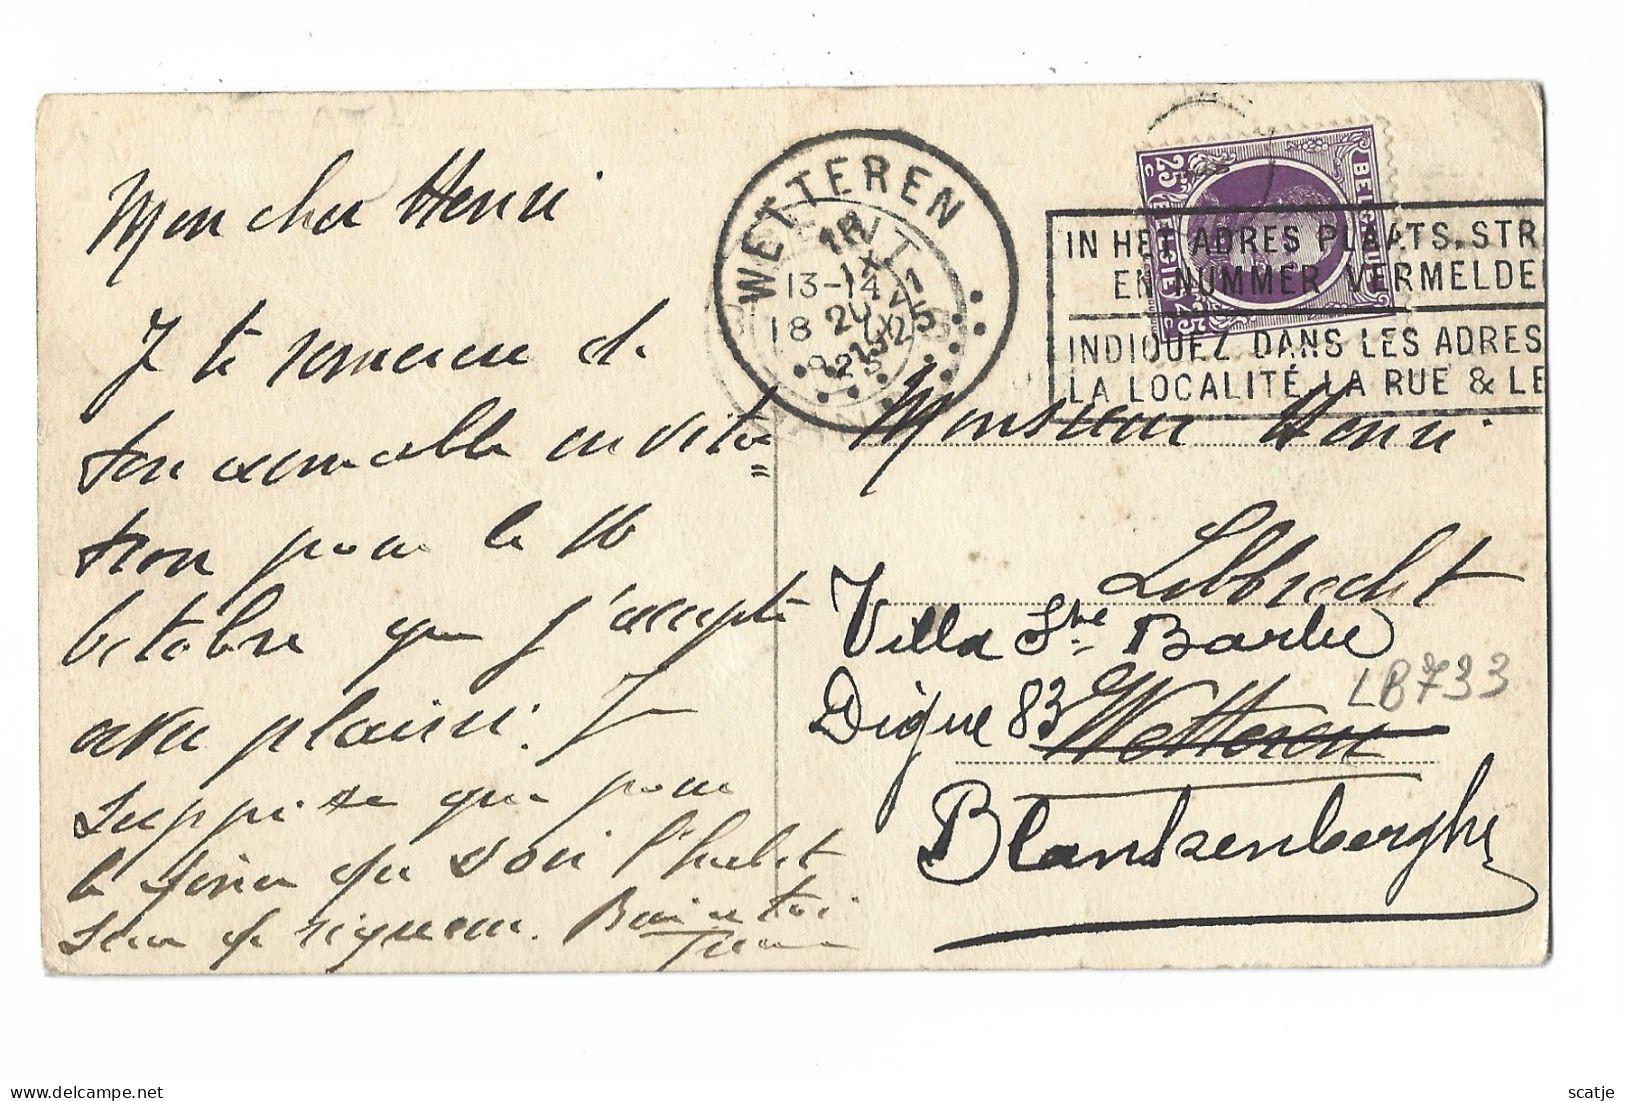 Mon cher Henri
Je te remercie de
ton aimable invita=
tion pour le 16
octobre que j'accepte
avec plaisir. Je
suppose que pour
le dîner du soir l'habit
sera de rigueur. Bien à toi
WETTEREN
13-14
18
BELGIQUE
BELGIE
25 c
25 c
IN HET ADRES PLAATS, STR
EN NUMMER VERMELDE
INDIQUEZ DANS LES ADRES
LA LOCALITÉ, LA RUE & LE
Monsieur Henri
Libbrecht
Villa Ste Barbe
Digue 83
Wetteren
LB733
Blankenberghe
scatje